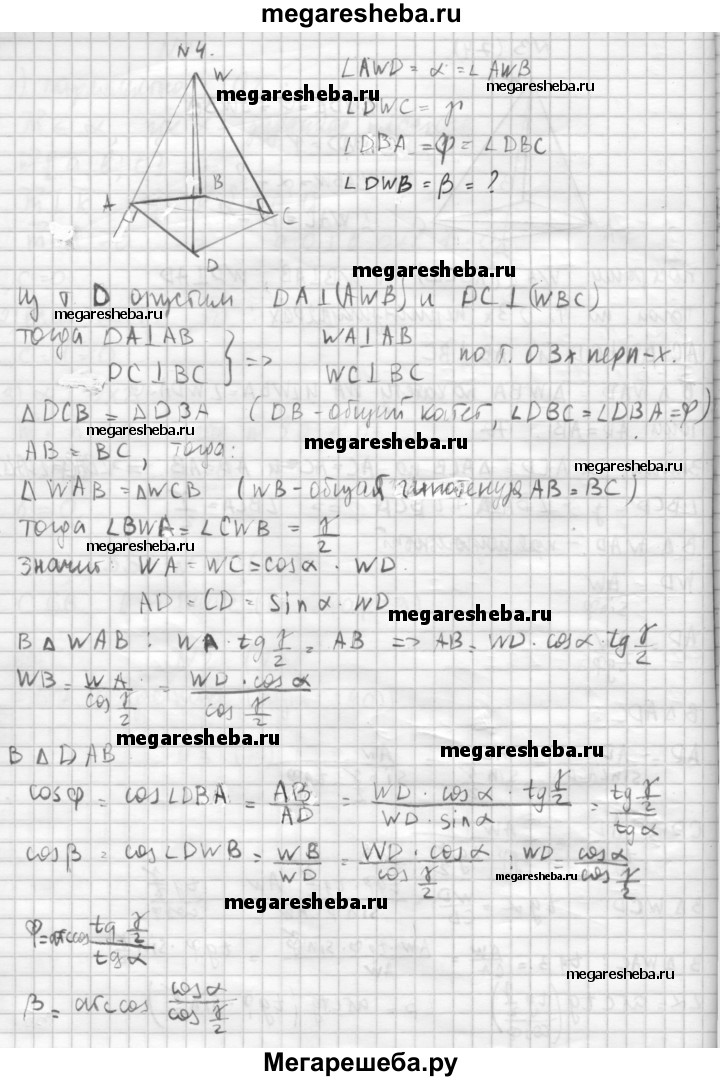 megaresheba.ru
N 4.
W
A
B
C
D
∠AWD = α = ∠AWB
megaresheba.ru
megaresheba.ru
∠DWC = γ
∠DBA = φ = ∠DBC
∠DWB = β = ?
megaresheba.ru
Из т D опустим DA⊥(AWB) и DC⊥(WBC)
megaresheba.ru
тогда DA⊥AB
DC⊥BC } => WA⊥AB
WC⊥BC по т. о 3х перп-х.
△DCB = △DBA (DB - общий катет, ∠DBC = ∠DBA = φ)
megaresheba.ru
megaresheba.ru
AB = BC, тогда:
megaresheba.ru
△WAB = △WCB (WB - общая гипотенуза AB = BC)
тогда ∠BWA = ∠CWB = γ/2
megaresheba.ru
значит: WA = WC = cosα · WD
AD = CD = sinα · WD
megaresheba.ru
В △WAB: WA · tg γ/2 = AB => AB = WD · cosα · tg γ/2
WB = WA / cos γ/2 = WD · cosα / cos γ/2
megaresheba.ru
megaresheba.ru
В △DAB
cosφ = cos∠DBA = AB/AD = WD · cosα · tg γ/2 / WD · sinα = tg γ/2 / tgα
cosβ = cos∠DWB = WB/WD = WD · cosα / cos γ/2 : WD = cosα / cos γ/2
megaresheba.ru
megaresheba.ru
φ = arccos tg γ/2 / tgα
megaresheba.ru
β = arccos cosα / cos γ/2
Мегарешеба.ру